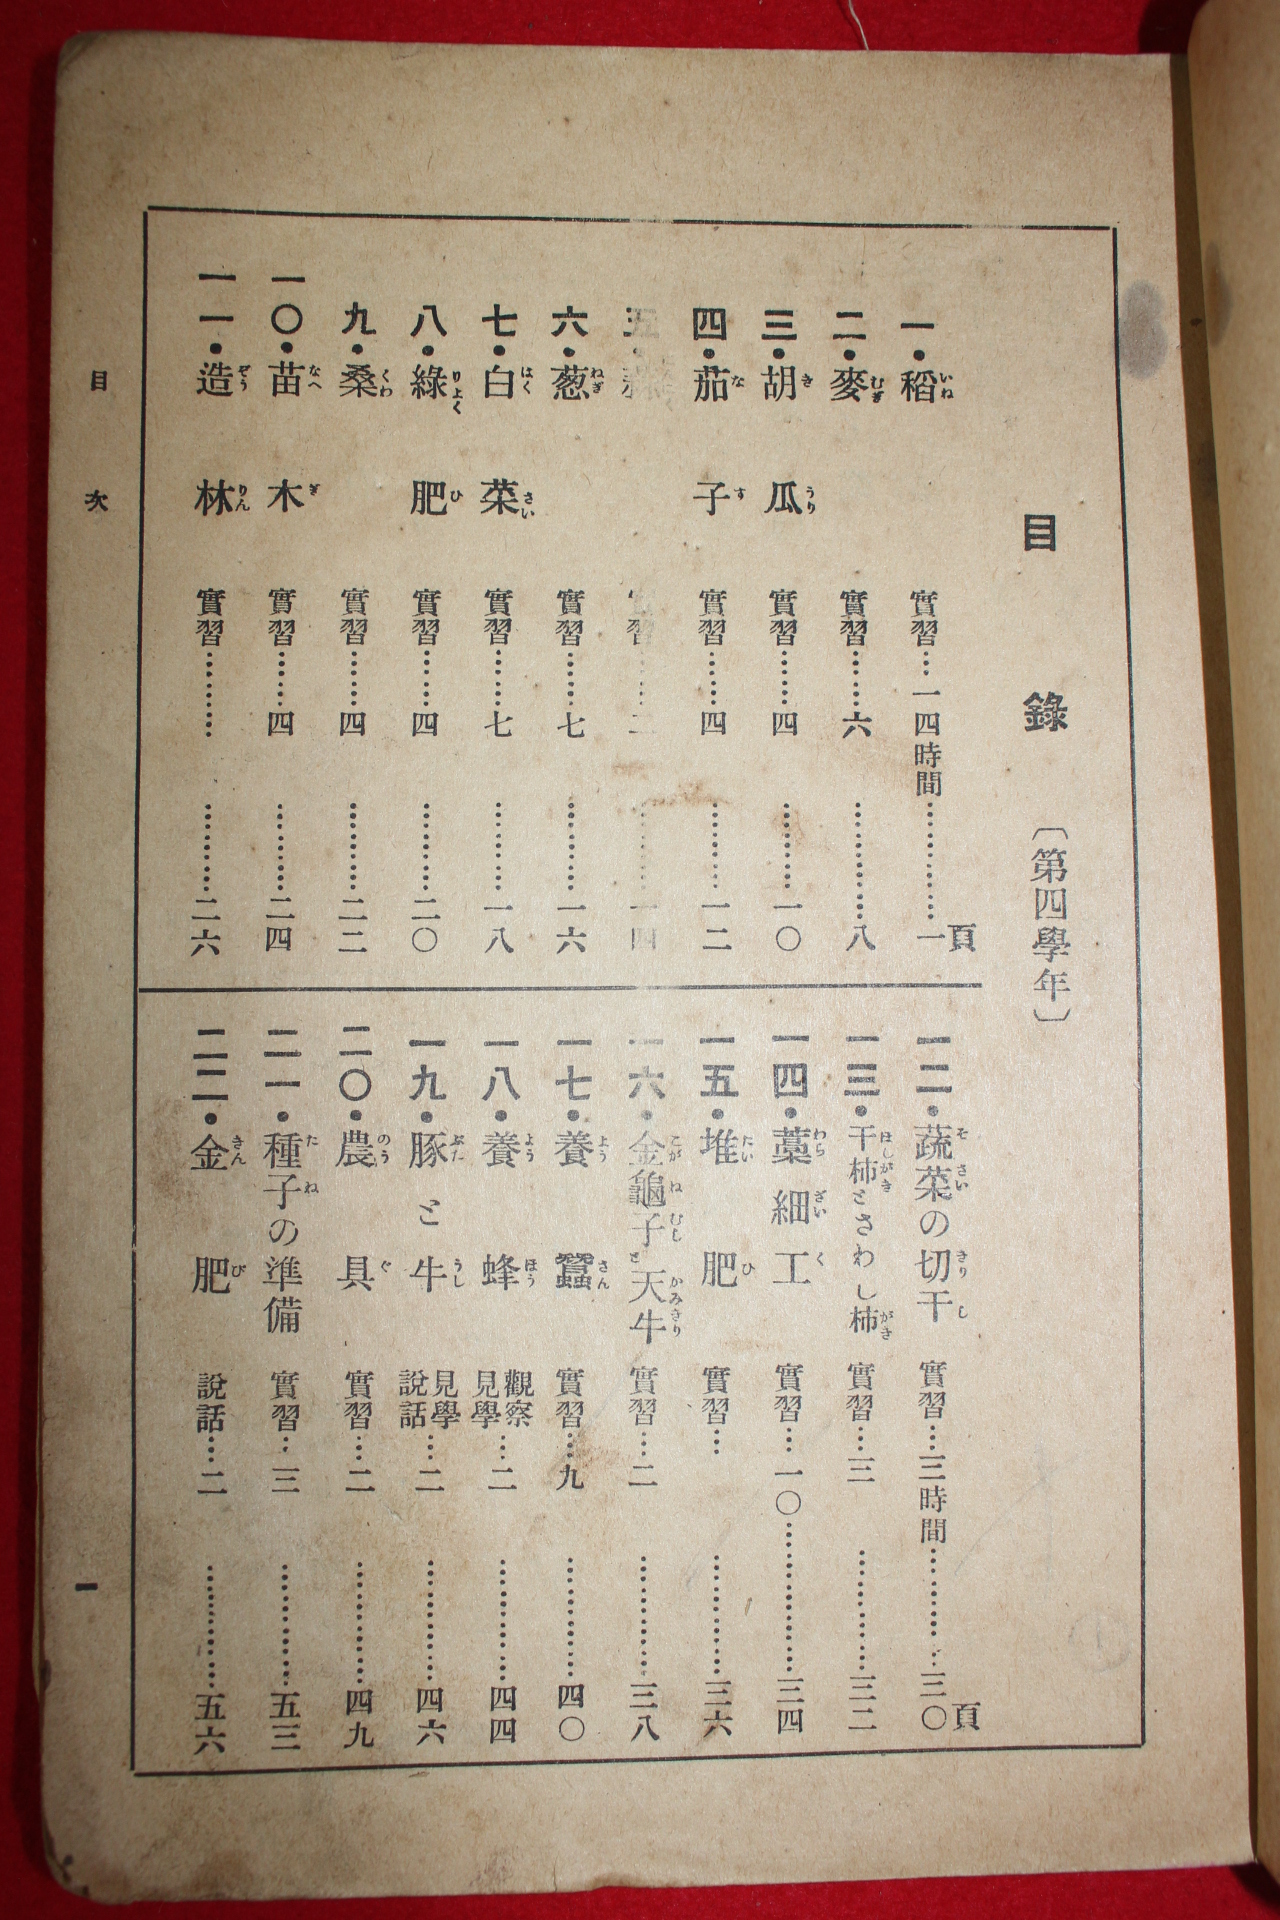 目錄〔第四學年〕
一・稻 實習…一四時間…………一頁
二・麥 實習……六…………八
三・胡瓜 實習……四…………一〇
四・茄子 實習……四…………一二
五・ 習……二…………一四
六・葱 實習……七…………一六
七・白菜 實習……七…………一八
八・綠肥 實習……四…………二〇
九・桑 實習……四…………二二
一〇・苗木 實習……四…………二四
一一・造林 實習………  …………二六
一二・蔬菜の切干 實習…三時間…………三〇頁
一三・干柿とさわし柿 實習…三…………三二
一四・藁細工 實習…一〇…………三四
一五・堆肥 實習… …………三六
一六・金龜子と天牛 實習…二…………三八
一七・養蠶 實習…九…………四〇
一八・養蜂 觀察見學…二…………四四
一九・豚と牛 見學說話…二…………四六
二〇・農具 實習…二…………四九
二一・種子の準備 實習…三…………五三
二二・金肥 說話…二…………五六
目次
一